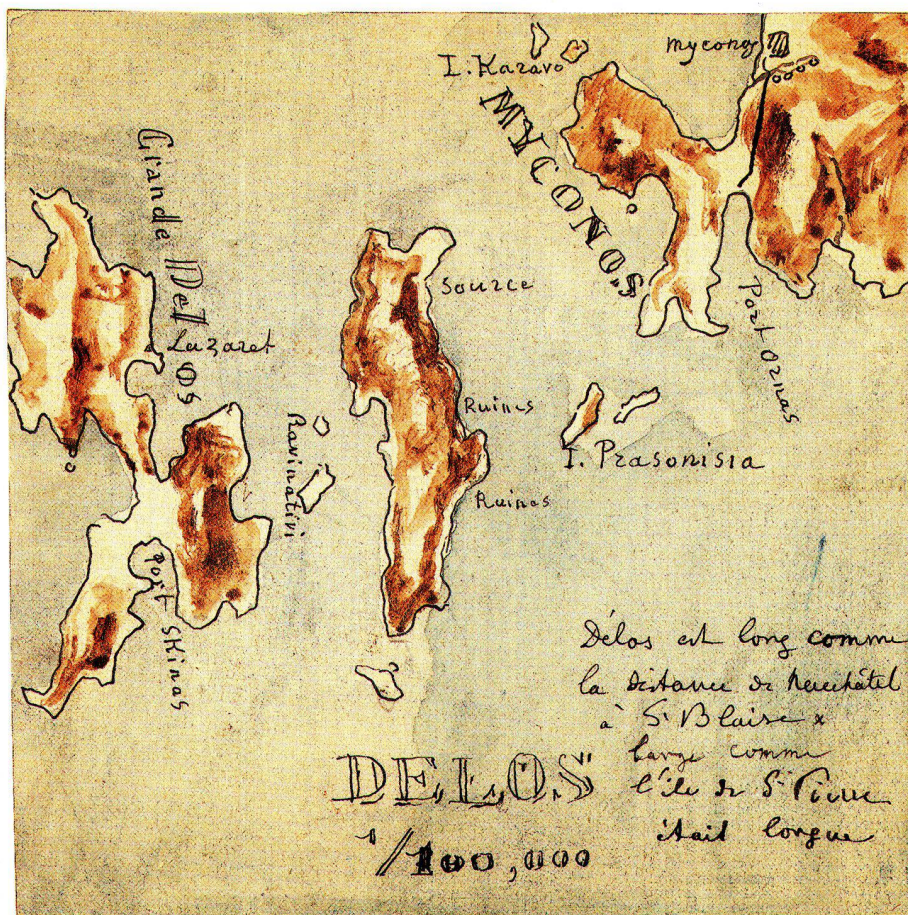 Mycono
I. Karavo
MYCONOS
Grande DeLos
Source
Port Ornas
Lazaret
Ruines
Ravinativi
I. Prasonisia
Ruines
Port Skinas
Délos est long comme
la distance de Neuchâtel
à St Blaise &
large comme
l'île de St Pierre
était longue
DELOS
1/100,000